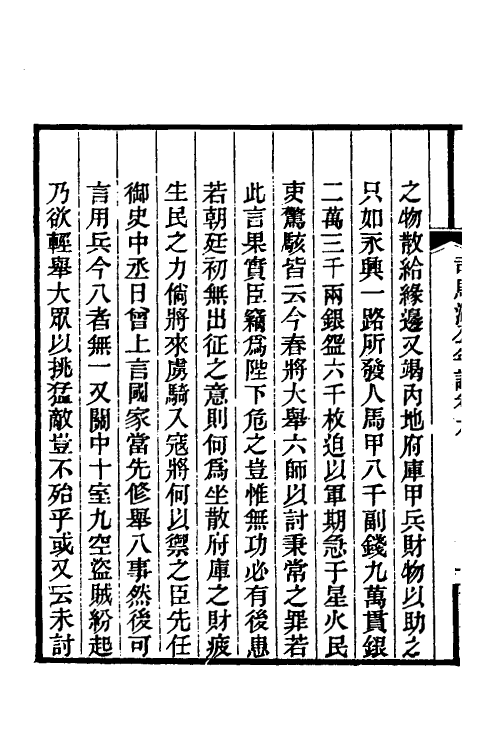 之物散給緣邊又竭內地府庫甲兵財物以助之
只如永興一路所發人馬甲八千副錢九萬貫銀
二萬三千兩銀盌六千枚迫以軍期急于星火民
吏驚駭皆云今春將大舉六師以討秉常之罪若
此言果實臣竊爲陛下危之豈惟無功必有後患
若朝廷初無出征之意則何爲坐散府庫之財疲
生民之力倘將來虜騎入寇將何以禦之臣先任
御史中丞日曾上言國家當先修舉八事然後可
言用兵今八者無一又關中十室九空盜賊紛起
乃欲輕舉大眾以挑猛敵豈不殆乎或又云未討